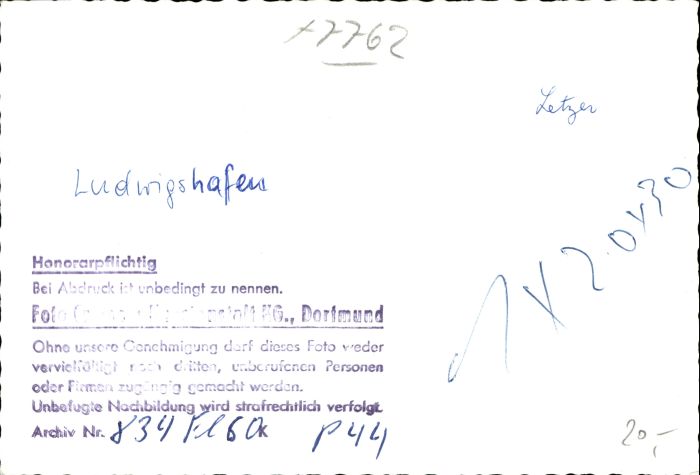 17762
Letzer
Ludwigshafen
1 x 20x30
Honorarpflichtig
Bei Abdruck ist unbedingt zu nennen.
Foto KG., Dortmund
Ohne unsere Genehmigung darf dieses Foto weder
vervielfältigt noch dritten, unberufenen Personen
oder Firmen zugängig gemacht werden.
Unbefugte Nachbildung wird strafrechtlich verfolgt.
Archiv Nr. 834 Fl 60K P44
20,-